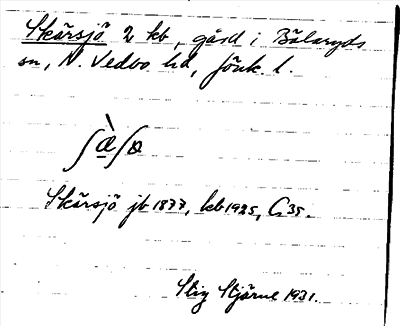 Skärsjö 2 kb, gård i Bälaryds
sn, N. Vedbo hd, Jönk. l.
ʃæ̀ʃɵ
Skärsjö jb 1877, kb 1925, G 35.
Stig Stjärne 1931.